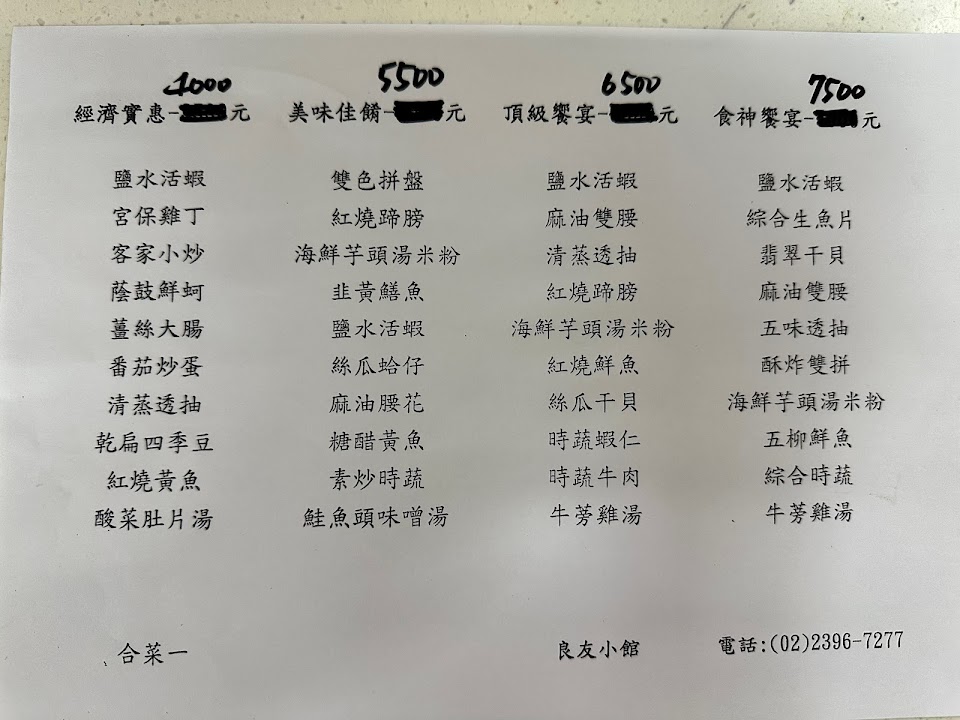 4000 5500 6500 7500
經濟實惠-元 美味佳餚-元 頂級饗宴-元 食神饗宴-元
鹽水活蝦 雙色拼盤 鹽水活蝦 鹽水活蝦
宮保雞丁 紅燒蹄膀 麻油雙腰 綜合生魚片
客家小炒 海鮮芋頭湯米粉 清蒸透抽 翡翠干貝
蔭鼓鮮蚵 韭黃鱔魚 紅燒蹄膀 麻油雙腰
薑絲大腸 鹽水活蝦 海鮮芋頭湯米粉 五味透抽
番茄炒蛋 絲瓜蛤仔 紅燒鮮魚 酥炸雙拼
清蒸透抽 麻油腰花 絲瓜干貝 海鮮芋頭湯米粉
乾扁四季豆 糖醋黃魚 時蔬蝦仁 五柳鮮魚
紅燒黃魚 素炒時蔬 時蔬牛肉 綜合時蔬
酸菜肚片湯 鮭魚頭味噌湯 牛蒡雞湯 牛蒡雞湯
合菜一 良友小館 電話:(02)2396-7277